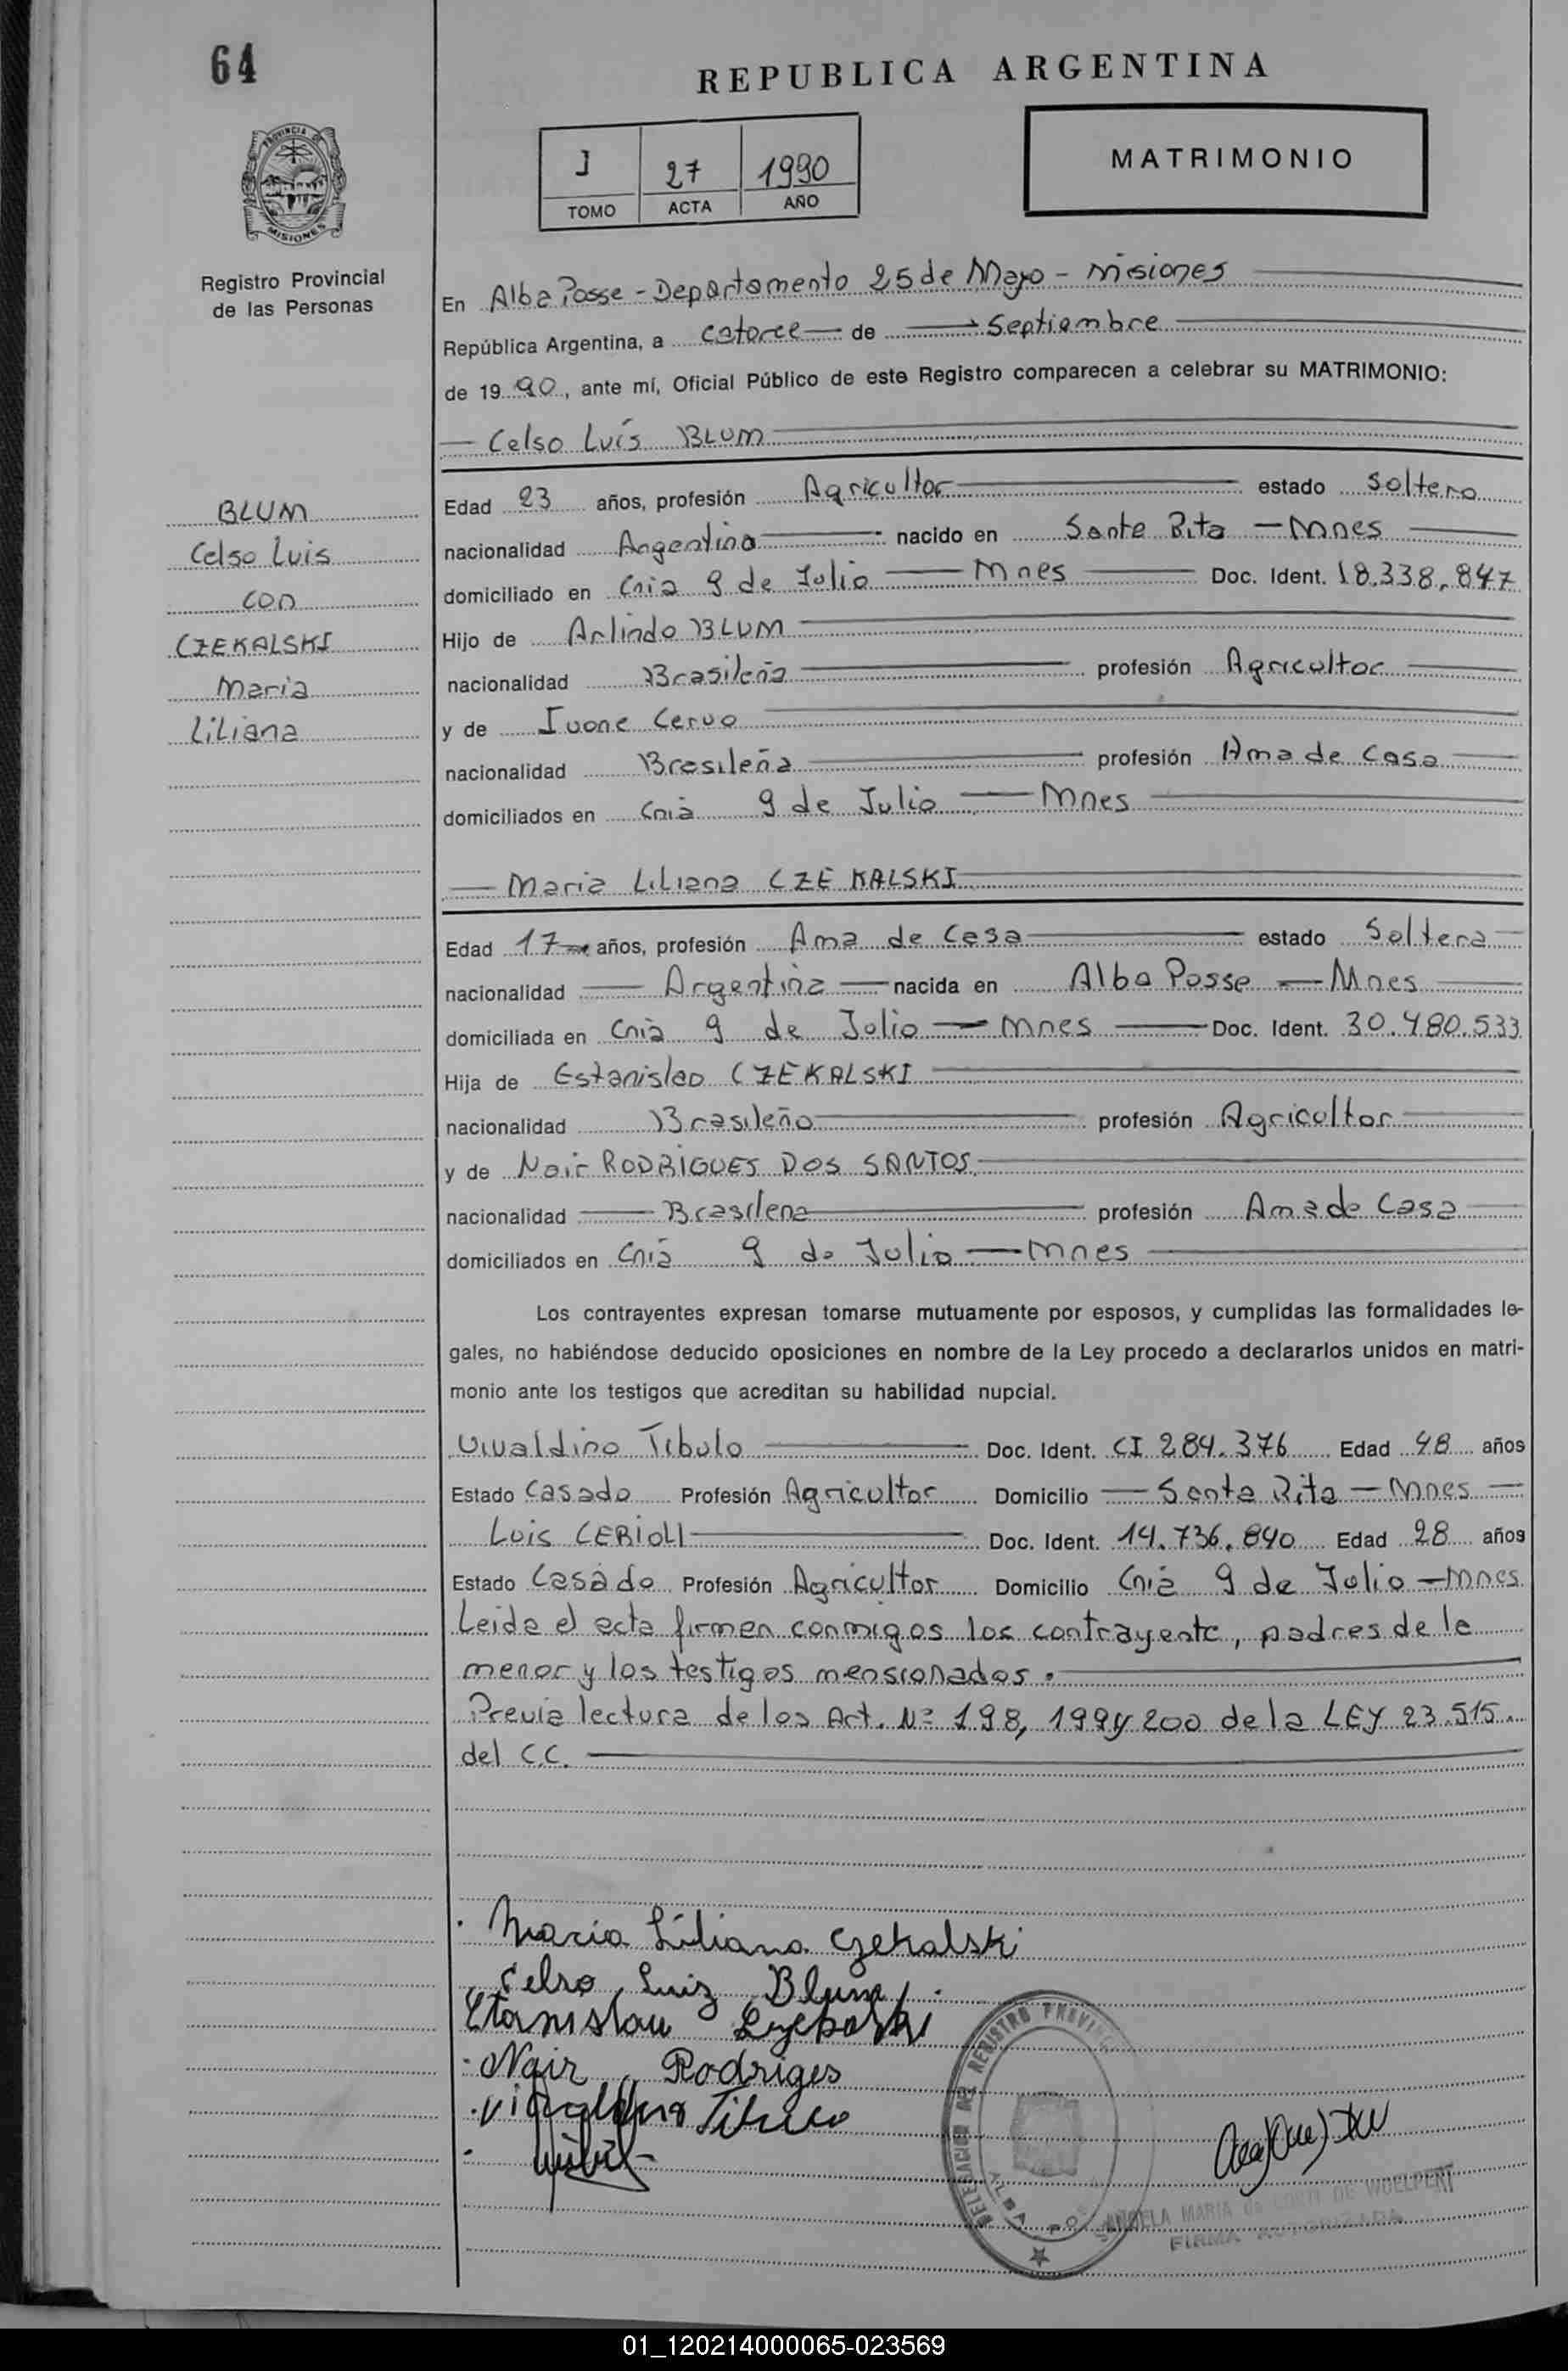 64
REPUBLICA ARGENTINA
PROVINCIA DE
MISIONES
Registro Provincial
de las Personas
I 27 1990
TOMO ACTA AÑO
MATRIMONIO
En Alba Posse - Departamento 25 de Mayo - Misiones
República Argentina, a catorce de Septiembre
de 1990, ante mí, Oficial Público de este Registro comparecen a celebrar su MATRIMONIO:
Celso Luís BLUM
BLUM
Celso Luis
con
CZEKALSKI
Maria
Liliana
Edad 23 años, profesión Agricultor estado Soltero
nacionalidad Argentina nacido en Santa Rita - Mnes
domiciliado en Cnia 9 de Julio - Mnes Doc. Ident. 18.338.847
Hijo de Arlindo BLUM
nacionalidad Brasileña profesión Agricultor
y de Ivone Cervo
nacionalidad Brasileña profesión Ama de Casa
domiciliados en Cnia 9 de Julio - Mnes
Maria Liliana CZEKALSKI
Edad 17 años, profesión Ama de Casa estado Soltera
nacionalidad Argentina nacida en Alba Posse - Mnes
domiciliada en Cnia 9 de Julio - Mnes Doc. Ident. 30.480.533
Hija de Estanislao CZEKALSKI
nacionalidad Brasileño profesión Agricultor
y de Nair RODRIGUES DOS SANTOS
nacionalidad Brasilena profesión Ama de Casa
domiciliados en Cnia 9 de Julio - Mnes
Los contrayentes expresan tomarse mutuamente por esposos, y cumplidas las formalidades le-
gales, no habiéndose deducido oposiciones en nombre de la Ley procedo a declararlos unidos en matri-
monio ante los testigos que acreditan su habilidad nupcial.
Vivaldino Tibulo Doc. Ident. CI 284.376 Edad 48 años
Estado Casado Profesión Agricultor Domicilio Santa Rita - Mnes
Luis CERIOLI Doc. Ident. 14.736.840 Edad 28 años
Estado Casado Profesión Agricultor Domicilio Cnia 9 de Julio - Mnes
Leida el acta firman conmigos los contrayente, padres de la
menor y los testigos mensionados.
Previa lectura de los Art. Nº 198, 199 y 200 de la LEY 23.515.
del C.C.
Maria Liliana Czekalski
Celso Luiz Blum
Estanislau
Nair Rodriges
Tibulo
DELEGACION DEL REGISTRO PROVINC
ALBA POSSE
ANGELA MARIA de CONTI DE WOELPERT
FIRMA AUTORIZADA
01_120214000065-023569